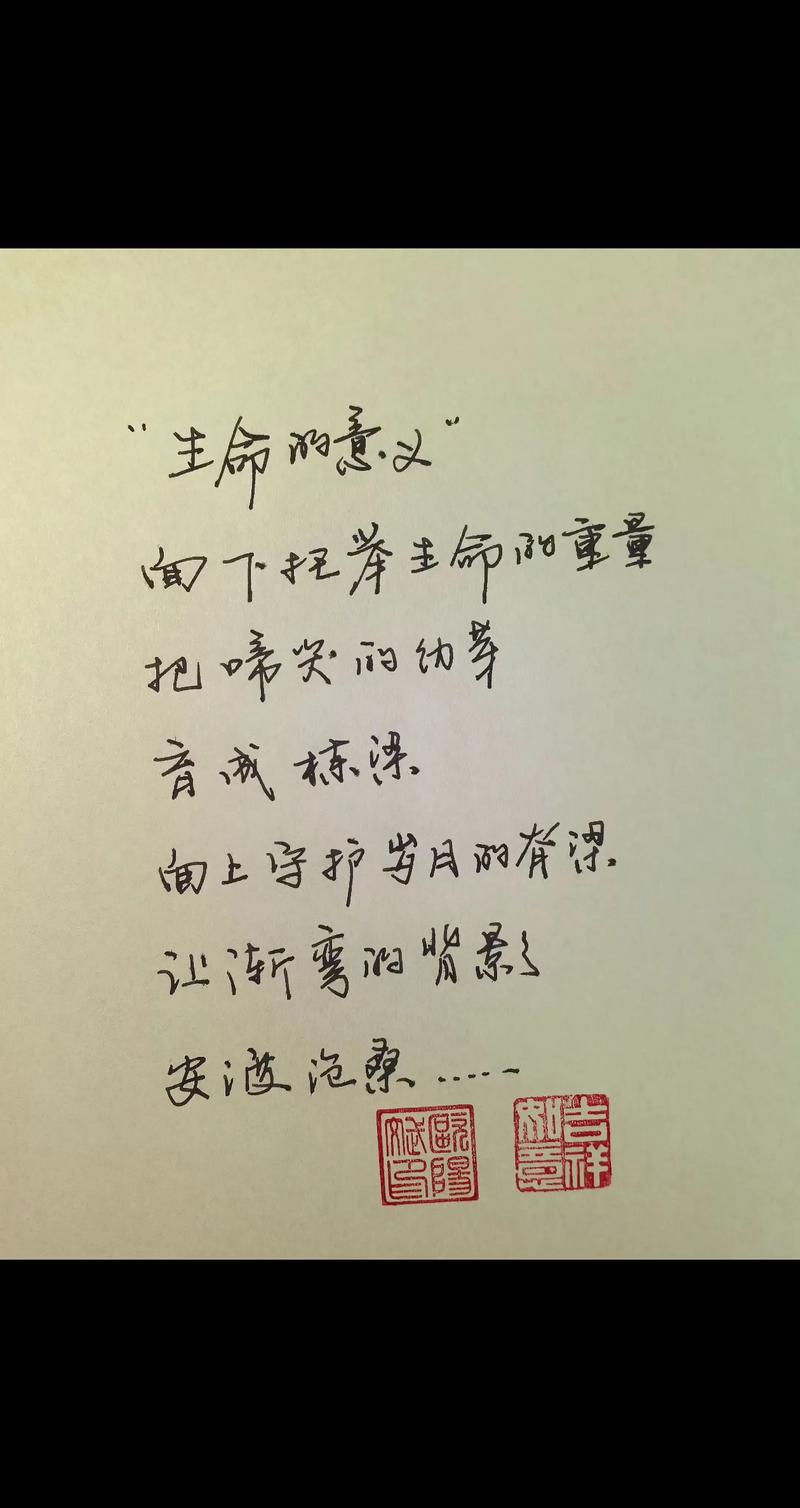 “生命的意义”
向下托举生命的重量
把啼哭的幼芽
育成栋梁
向上守护岁月的脊梁
让渐弯的背影
安渡沧桑……
歐陽印
吉祥如意